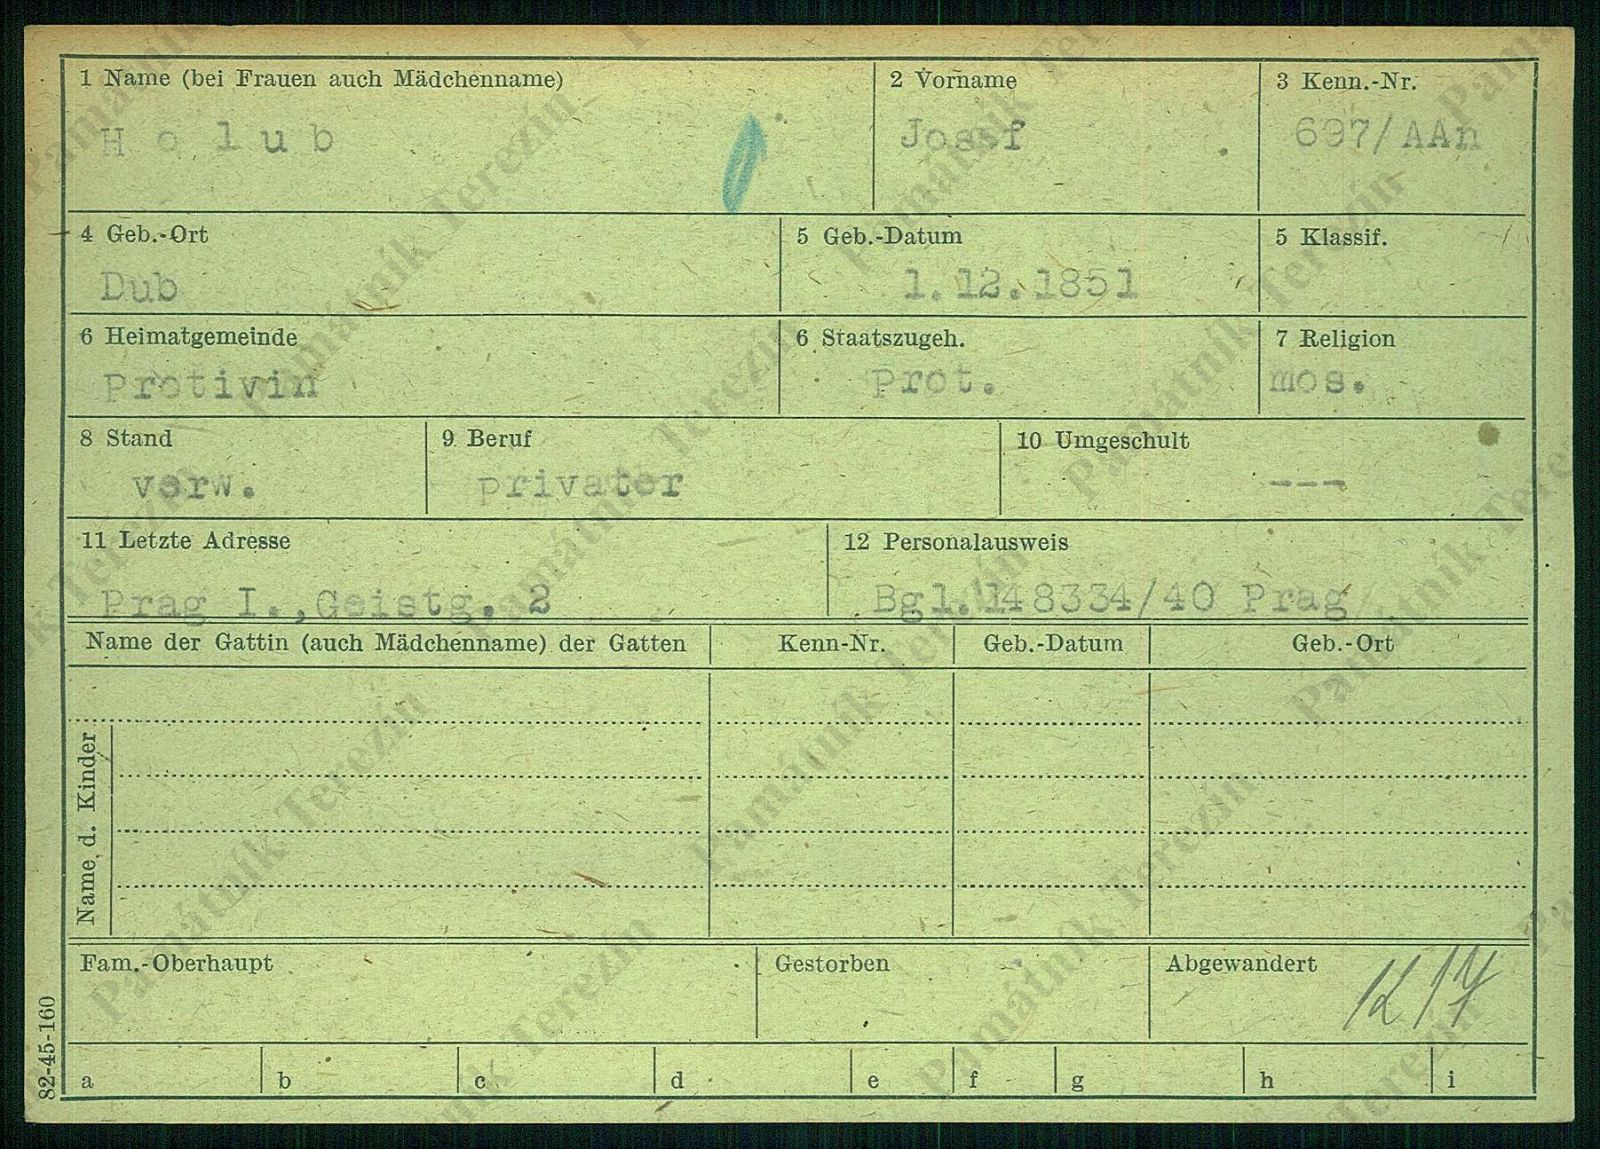 1 Name (bei Frauen auch Mädchenname) 2 Vorname 3 Kenn.-Nr.
Holub Josef 697/AAn
4 Geb.-Ort 5 Geb.-Datum 5 Klassif.
Dub 1.12.1851
6 Heimatgemeinde 6 Staatszugeh. 7 Religion
Protivin Prot. mos.
8 Stand 9 Beruf 10 Umgeschult
verw. privater ---
11 Letzte Adresse 12 Personalausweis
Prag I.,Geistg. 2 Bgl.148334/40 Prag
Name der Gattin (auch Mädchenname) der Gatten Kenn-Nr. Geb.-Datum Geb.-Ort
Name d. Kinder
Fam.-Oberhaupt Gestorben Abgewandert
a b c d e f g h i
82-45-160
Památník Terezín